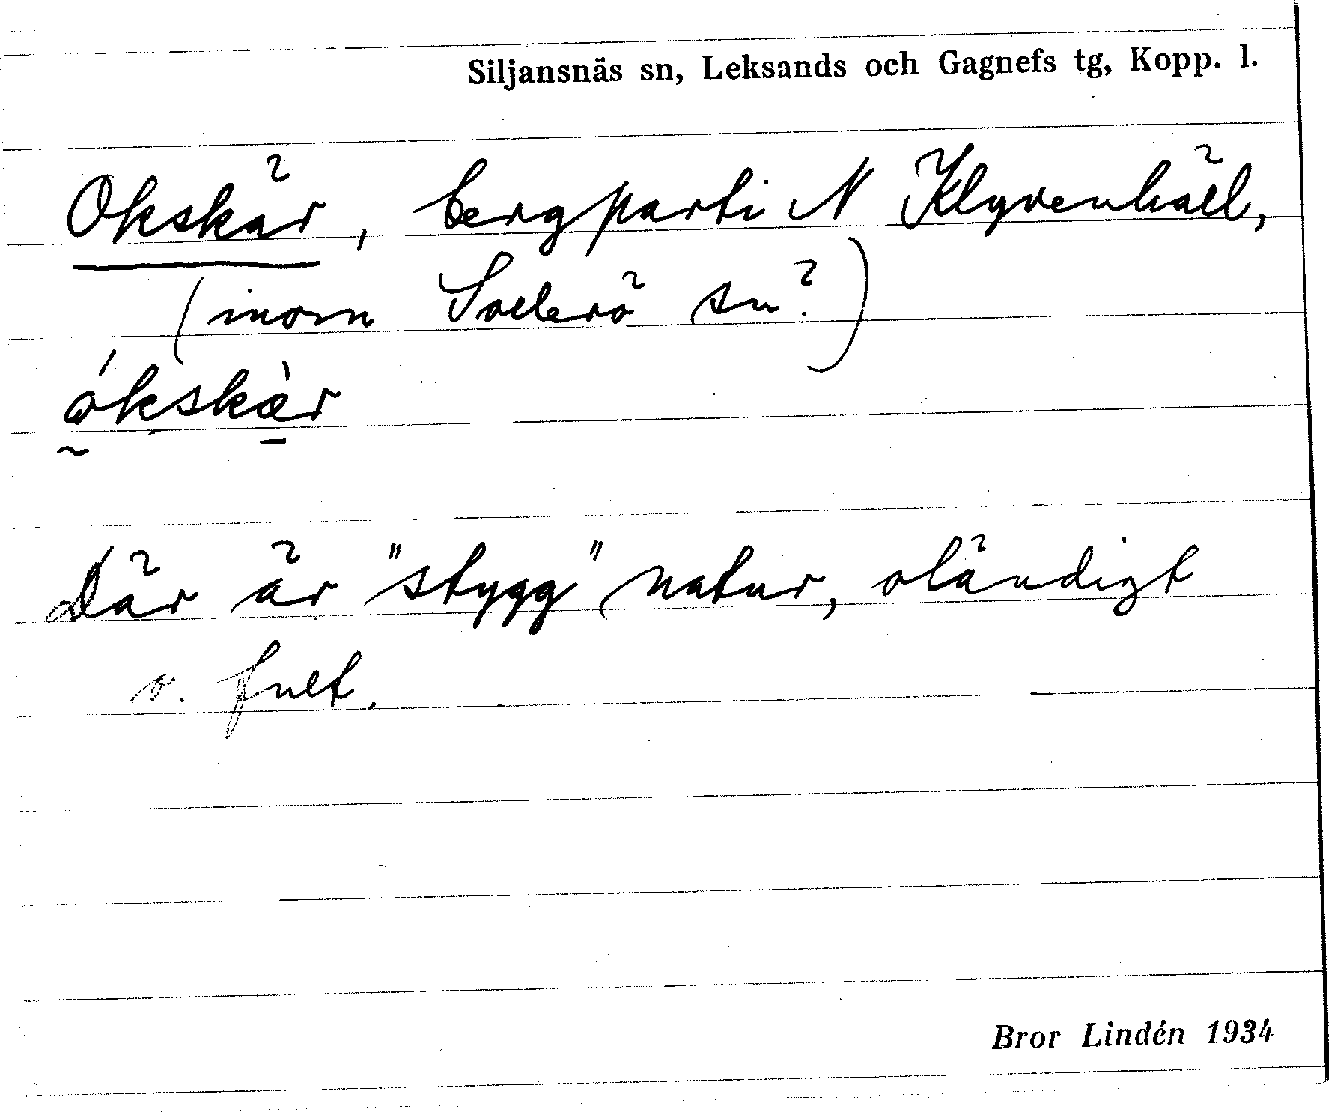 Siljansnäs sn, Leksands och Gagnefs tg, Kopp. l.
Okskär, bergparti N Klyvenhäll,
(inom Sollerö sn?)
ókskæ̀r
Där är "stygg" natur, oländigt
o. fult.
Bror Lindén 1934